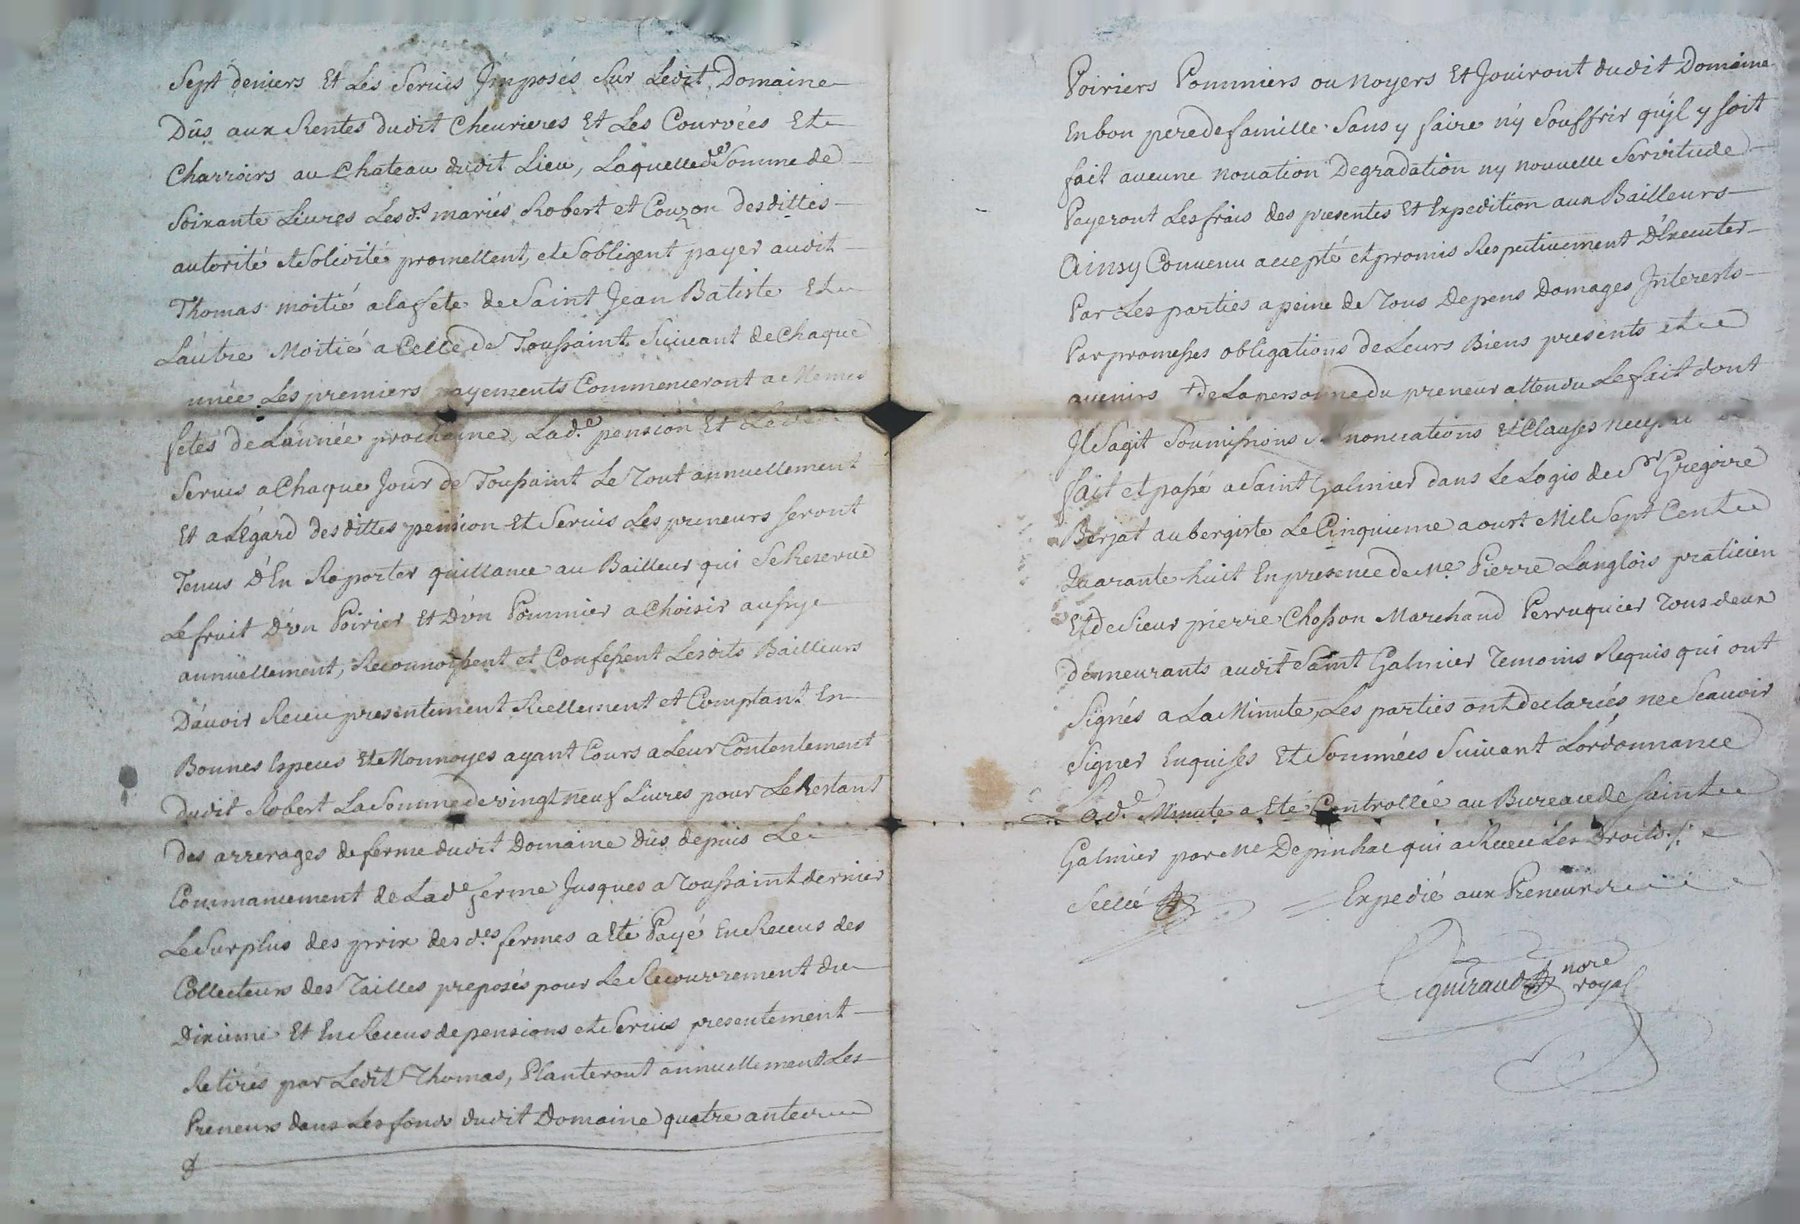 Sept deniers Et Les Servis Imposés Sur Ledit Domaine
Dûs aux Rentes dudit Cheurieres Et Les Courvées Et
Charroirs au Chateau dudit Lieu, Laquelle de Somme de
Soixante Livres Lesd.s mariés Robert et Couzon desdittes
autorité et Solidité promettent et S'obligent payer audit
Thomas moitié a la fete de Saint Jean Batiste Et
L'autre Moitié a Celle de Toussaint Suivant de Chaque
nnée Les premiers payements Commenceront a Memes
fetes de L'année prochaine, Lad.e pension Et Led.
Servis a Chaque Jour de Toussaint Le Tout annuellement
Et a L'Egard desdittes pension Et Servis Les preneurs seront
Tenus D'En Raporter quittance au Bailleur qui Se Reserve
Le fruit D'vn Poirier Et D'vn Pommier a Choisir aussy
annuellement, Reconnoissent et Confessent Lesdits Bailleurs
D'avoir Receu presentement Reellement et Comptant En
Bonnes Especes Et Monnoyes ayant Cours a Leur Contentement
dudit Robert La Somme de vingt neuf Livres pour Le Restant
des arrerages de ferme dudit Domaine Dûs depuis Le
Commancement de Lad.e ferme Jusques a Toussaint dernier
Le Surplus des prix des d.es fermes a Eté Payé En Receus des
Collecteurs des Tailles preposés pour Le Recouvrement du
Dixieme Et En Receus de pensions et Servis presentement
Retirés par Ledit Thomas, Planteront annuellement Les
Preneurs dans Les fonds dudit Domaine quatre antes
Poiriers Pommiers ou Noyers Et Jouiront dudit Domaine
En bon pere de famille Sans y faire n'y Souffrir qu'jl y soit
fait aucune Novation Degradation ny nouvelle Servitude
Payeront Les frais des presentes Et Expedition aux Bailleurs
Ainsy Convenu accepté et promis Respectivement D'Executer
Par Les parties a peine de Tous Depens Domages Interests
Par promesses obligations de Leurs Biens presents et
avenirs + de La personne du preneur attendu Le fait dont
Jl S'agit Soumissions Renonciations Et Clauses
fait et passé a Saint Galmier dans Le Logis de Sr Gregoire
Berjat aubergiste Le Cinquieme aoust Mil Sept Cent
Quarante huit En presence de Me Pierre Langlois praticien
Et de Sieur pierre Chosson Marchand Perruquier Tous deux
demeurants audit Saint Galmier Temoins Requis qui ont
Signés a La Minute, Les parties ont declarées ne Scavoir
Signer Enquises Et Sommées Suivant L'ordonnance
Lad.e Minute a Eté Controllée au Bureau de Saint
Galmier par Me Depinhac qui a Receu Les Droits
Scellé
Expedié aux Preneurs
Pigniraud nore
royal